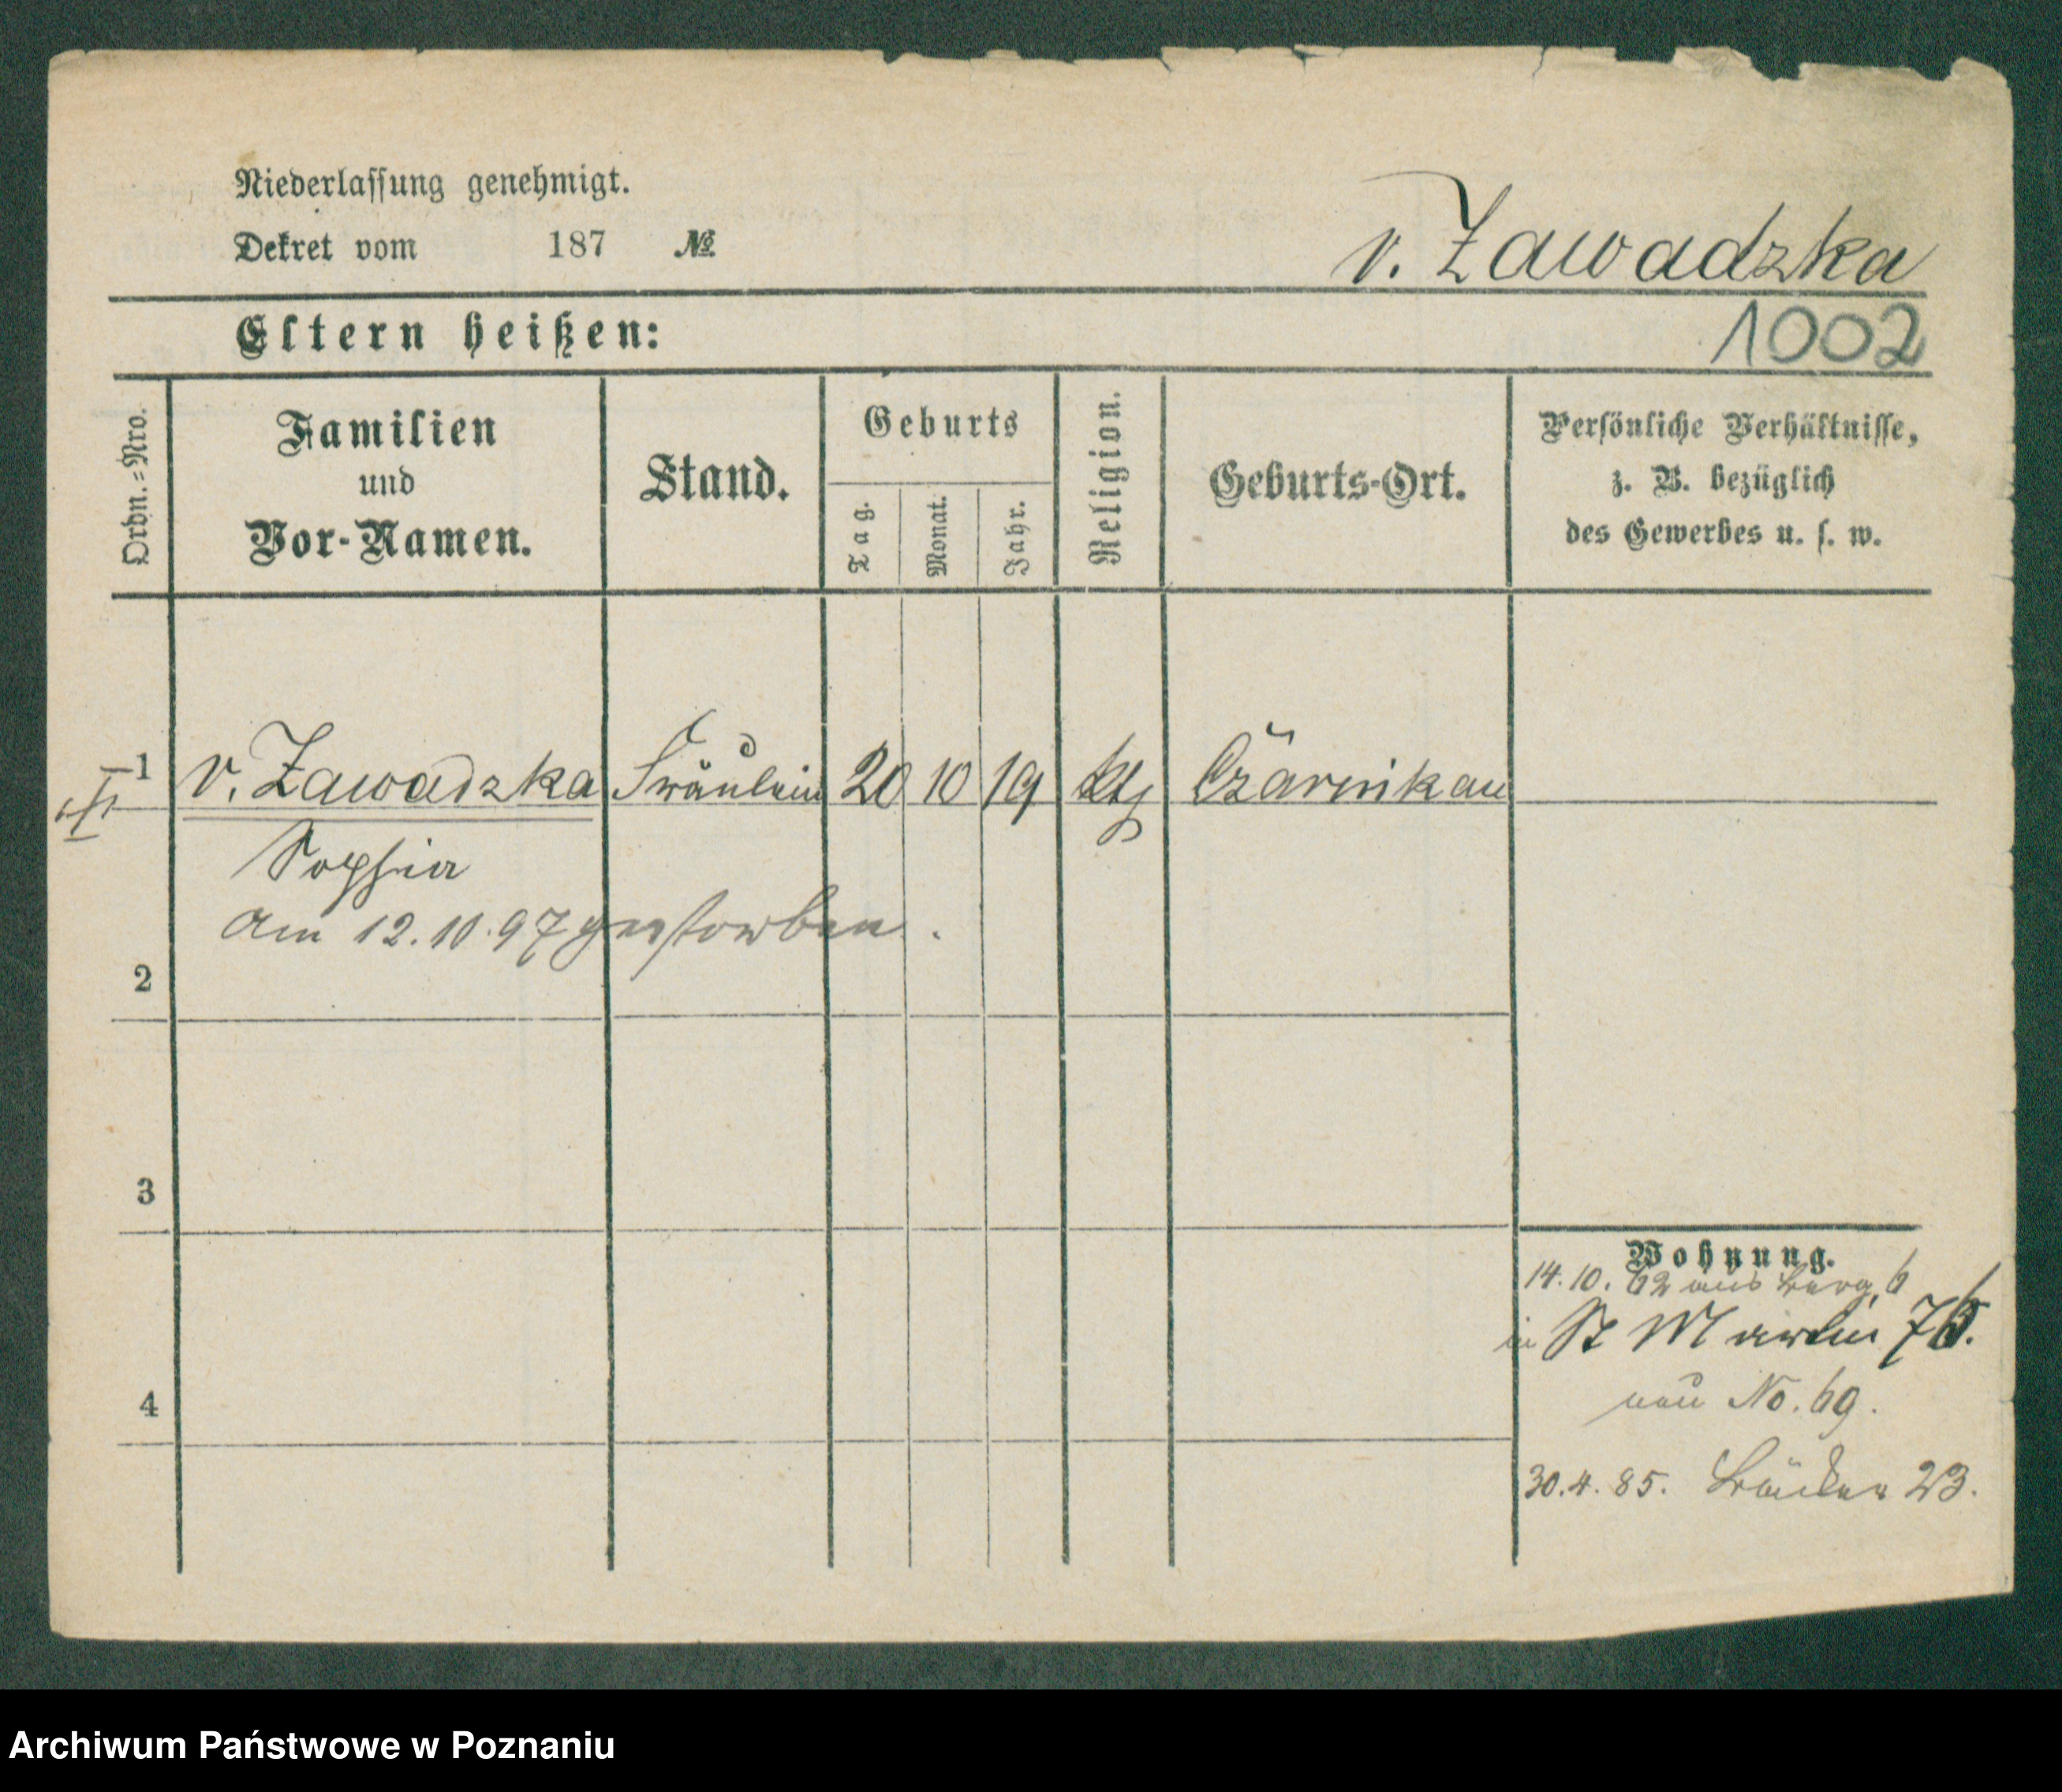 Niederlassung genehmigt.
Dekret vom 187 №
v. Zawadzka
1002
Eltern heißen:
Ordn.=Nro.
Familien
und
Vor-Namen.
Stand.
Geburts
Tag.
Monat.
Jahr.
Religion.
Geburts-Ort.
Persönliche Verhältnisse,
z. B. bezüglich
des Gewerbes u. s. w.
1 v. Zawadzka Fräulein 20 10 19 kth Czarnikau
Sophia
am 12.10.97 gestorben.
2
3
4
Wohnung.
14.10. 62 aus Berg 6
in St Martin 76.
neu No. 69.
30.4.85. Bäcker 23.
Archiwum Państwowe w Poznaniu